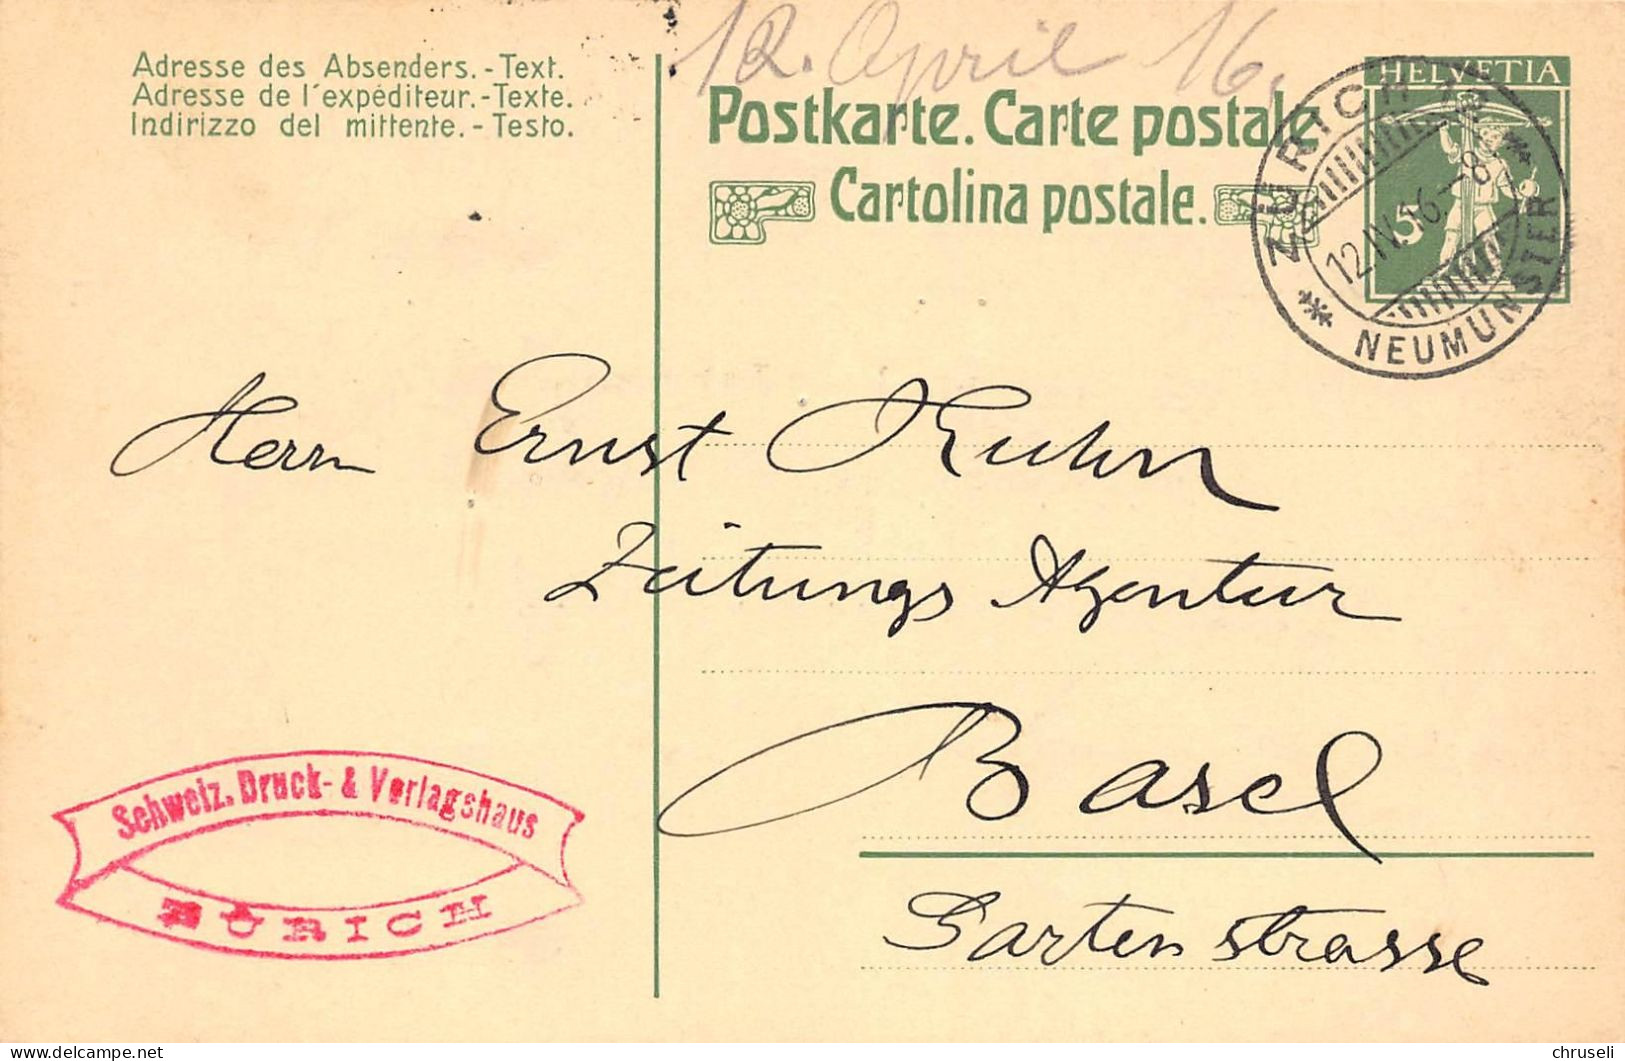 12. April 16.
Adresse des Absenders.-Text.
Adresse de l'expéditeur.-Texte.
Indirizzo del mittente.-Testo.
Postkarte. Carte postale
Cartolina postale.
HELVETIA
5
ZÜRICH 12
12.IV.16.-8
NEUMÜNSTER
Herrn Ernst Kuhn
Zeitungs Agentur
Basel
Gartenstrasse
Schweiz. Druck- & Verlagshaus
ZÜRICH
chruseli